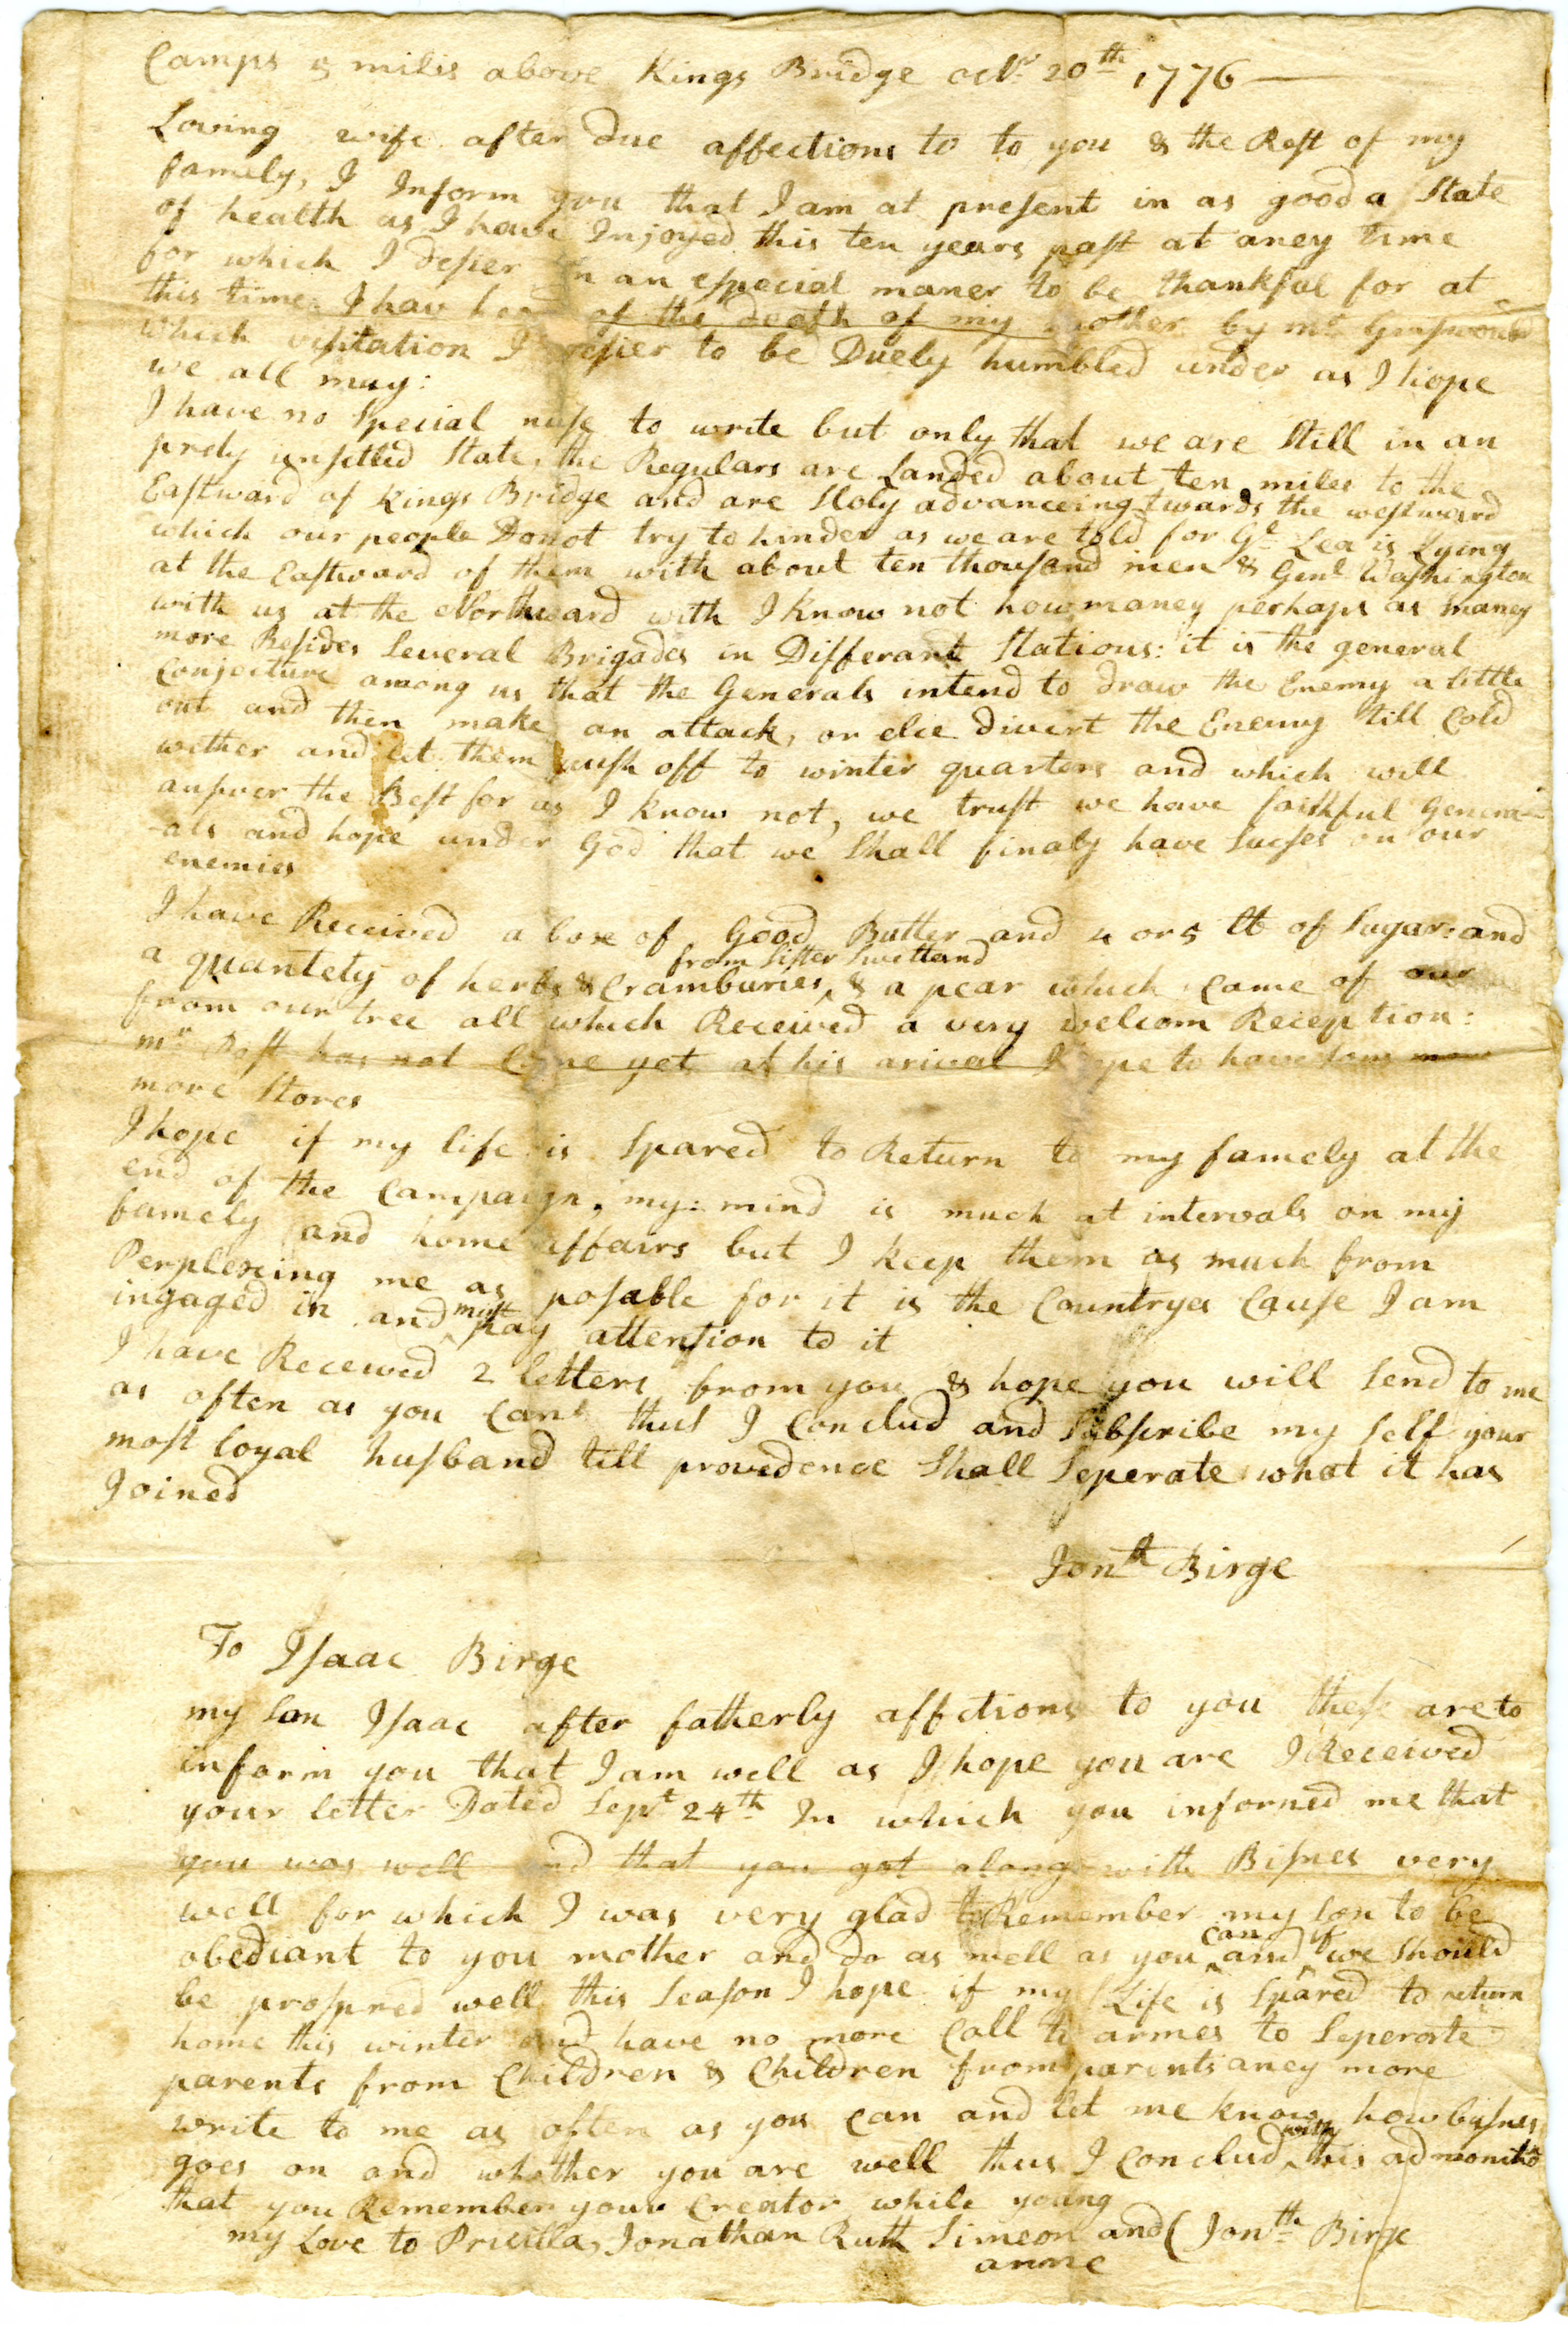 Camps 5 miles above Kings Bridge octr. 20th 1776
Loving wife after due affections to to you & the Rest of my
famely, I Inform you that I am at present in as good a State
of health as I have Injoyed this ten years past at aney time
for which I desier in an especial maner to be thankful for at
this time. I hav heard of the death of my mother by mr.
which visitation I desier to be Duely humbled under as I hope
we all may:
I have no Special nuse to write but only that we are Still in an
prety unsetled State, the Regulars are Landed about ten miles to the
Eastward of Kings Bridge and are Sloly advanceing twards the westward
which our people Donot try to hinder as we are told for Gl. Lea is Lying
at the Eastward of them with about ten thousand men & Genl. Washington
with us at the Northward with I know not how maney perhaps as maney
more Besides Several Brigades in Differant Stations: it is the general
Conjecture among us that the Generals intend to draw the Enemy a little
out and then make an attack, or else divert the Enemy till Cold
wether and let them push off to winter quarters and which will
answer the Best for us I know not, we trust we have faithful Genera-
-als and hope under God that we Shall finaly have Sucses on our
enemies
I have Received a box of Good Butter and 4 or 5 lt of Sugar: and
a quantety of herbs & Cramburies, from Sister Swetland & a pear which Came of our
from our tree all which Received a very welcom Reception:
mr. Post has not Come yet at his arival I hope to have som more
more Stores
I hope if my life is Spared to Return to my famely at the
end of the Campaign, my: mind is much at intervals on my
famely and home affairs but I keep them as much from
Perplexing me as posable for it is the Countryes Cause I am
ingaged in and must pay attension to it
I have Received 2 letters from you & hope you will Send to me
as often as you Can thus I Conclud and Subscribe my Self your
most loyal husband till provedence Shall Seperate what it has
Joined
Jonth Birge
To Isaac Birge
my Son Isaac after fatherly affctions to you these are to
inform you that I am well as I hope you are I Received
your letter Dated Sept. 24th In which you informed me that
you was well and that you got along with Bisnes very
well for which I was very glad Remember my son to be
obediant to you mother and do as well as you can and if we Should
be prospred well this Season I hope if my Life is Spared to return
home this winter and have no more Call to armes to Seperate
parents from Children & Children from parents aney more
write to me as often as you can and let me know how busnes
goes on and whather you are well thus I conclud with this admonitio
that you Remember your Creator while young
my Love to Pricilla, Jonathan Ruth Simeon and ( Jonth. Birge
anne